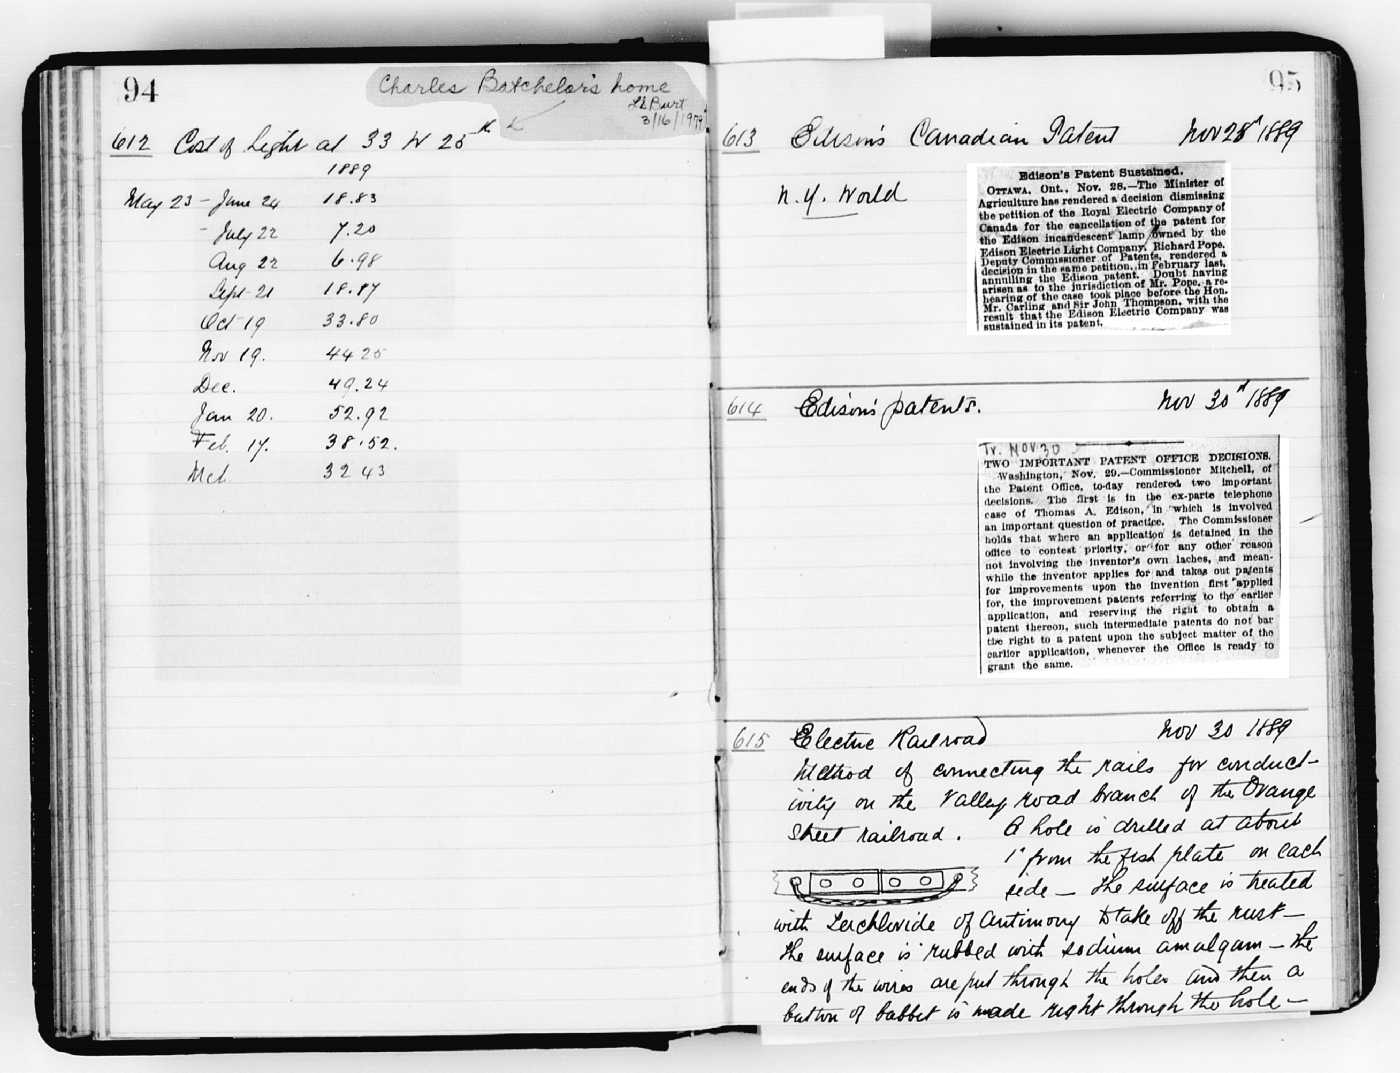 94
Charles Batchelor's home
3/16/1979
612 Cost of Light at 33 W 25th
1889
May 23 - June 24 18.83
- July 22 7.20
Aug 22 6.98
Sept 21 18.87
Oct 19 33.80
Nov 19. 44 25
Dec. 49.24
Jan 20. 52.92
Feb. 17. 38.52.
Mch 32 43
95
613 Edison's Canadian Patent Nov 28th 1889
N.Y. World
Edison's Patent Sustained.
OTTAWA, Ont., Nov. 28.—The Minister of
Agriculture has rendered a decision dismissing
the petition of the Royal Electric Company of
Canada for the cancellation of the patent for
the Edison incandescent lamp owned by the
Edison Electric Light Company. Richard Pope,
Deputy Commissioner of Patents, rendered a
decision in the same petition, in February last,
annulling the Edison patent. Doubt having
arisen as to the jurisdiction of Mr. Pope, a re-
hearing of the case took place before the Hon.
Mr. Carling and Sir John Thompson, with the
result that the Edison Electric Company was
sustained in its patent.
614 Edison's patents. Nov 30th 1889
Tr. Nov 30
TWO IMPORTANT PATENT OFFICE DECISIONS.
Washington, Nov. 29.—Commissioner Mitchell, of
the Patent Office, to-day rendered two important
decisions. The first is in the ex-parte telephone
case of Thomas A. Edison, in which is involved
an important question of practice. The Commissioner
holds that where an application is detained in the
office to contest priority, or for any other reason
not involving the inventor's own laches, and mean-
while the inventor applies for and takes out patents
for improvements upon the invention first applied
for, the improvement patents referring to the earlier
application, and reserving the right to obtain a
patent thereon, such intermediate patents do not bar
the right to a patent upon the subject matter of the
earlier application, whenever the Office is ready to
grant the same.
615 Electric Railroad Nov 30 1889
Method of connecting the rails for conduct-
ivity on the Valley road branch of the Orange
Street railroad. A hole is drilled at about
1" from the fish plate on each
side — The surface is treated
with Terchloride of Antimony to take off the rust —
The surface is rubbed with sodium amalgam — the
ends of the wires are put through the holes and then a
button of babbit is made right through the hole —